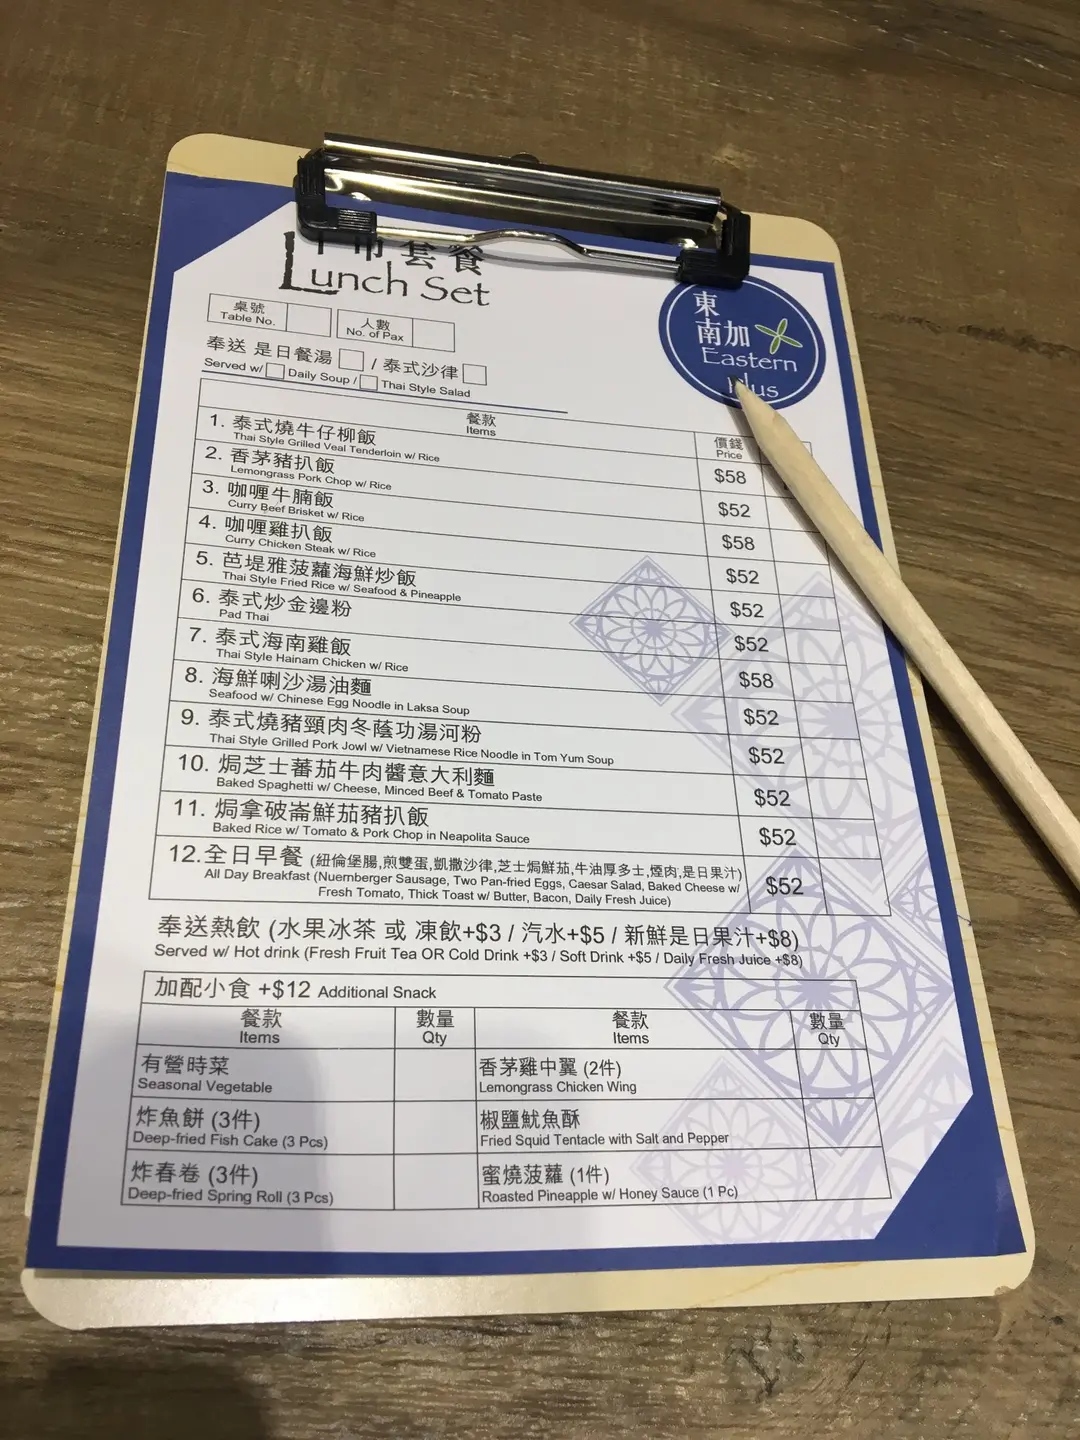 套餐
Lunch Set
東
南加
Eastern
Plus
桌號
Table No.
人數
No. of Pax
奉送 是日餐湯 / 泰式沙律
Served w/ Daily Soup / Thai Style Salad
餐款
Items
價錢
Price
1. 泰式燒牛仔柳飯
Thai Style Grilled Veal Tenderloin w/ Rice
$58
2. 香茅豬扒飯
Lemongrass Pork Chop w/ Rice
$52
3. 咖喱牛腩飯
Curry Beef Brisket w/ Rice
$58
4. 咖喱雞扒飯
Curry Chicken Steak w/ Rice
$52
5. 芭堤雅菠蘿海鮮炒飯
Thai Style Fried Rice w/ Seafood & Pineapple
$52
6. 泰式炒金邊粉
Pad Thai
$52
7. 泰式海南雞飯
Thai Style Hainam Chicken w/ Rice
$58
8. 海鮮喇沙湯油麵
Seafood w/ Chinese Egg Noodle in Laksa Soup
$52
9. 泰式燒豬頸肉冬蔭功湯河粉
Thai Style Grilled Pork Jowl w/ Vietnamese Rice Noodle in Tom Yum Soup
$52
10. 焗芝士蕃茄牛肉醬意大利麵
Baked Spaghetti w/ Cheese, Minced Beef & Tomato Paste
$52
11. 焗拿破崙鮮茄豬扒飯
Baked Rice w/ Tomato & Pork Chop in Neapolita Sauce
$52
12.全日早餐 (紐倫堡腸,煎雙蛋,凱撒沙律,芝士焗鮮茄,牛油厚多士,煙肉,是日果汁)
All Day Breakfast (Nuernberger Sausage, Two Pan-fried Eggs, Caesar Salad, Baked Cheese w/
Fresh Tomato, Thick Toast w/ Butter, Bacon, Daily Fresh Juice)
$52
奉送熱飲 (水果冰茶 或 凍飲+$3 / 汽水+$5 / 新鮮是日果汁+$8)
Served w/ Hot drink (Fresh Fruit Tea OR Cold Drink +$3 / Soft Drink +$5 / Daily Fresh Juice +$8)
加配小食 +$12 Additional Snack
餐款
Items
數量
Qty
餐款
Items
數量
Qty
有營時菜
Seasonal Vegetable
香茅雞中翼 (2件)
Lemongrass Chicken Wing
炸魚餅 (3件)
Deep-fried Fish Cake (3 Pcs)
椒鹽魷魚酥
Fried Squid Tentacle with Salt and Pepper
炸春卷 (3件)
Deep-fried Spring Roll (3 Pcs)
蜜燒菠蘿 (1件)
Roasted Pineapple w/ Honey Sauce (1 Pc)